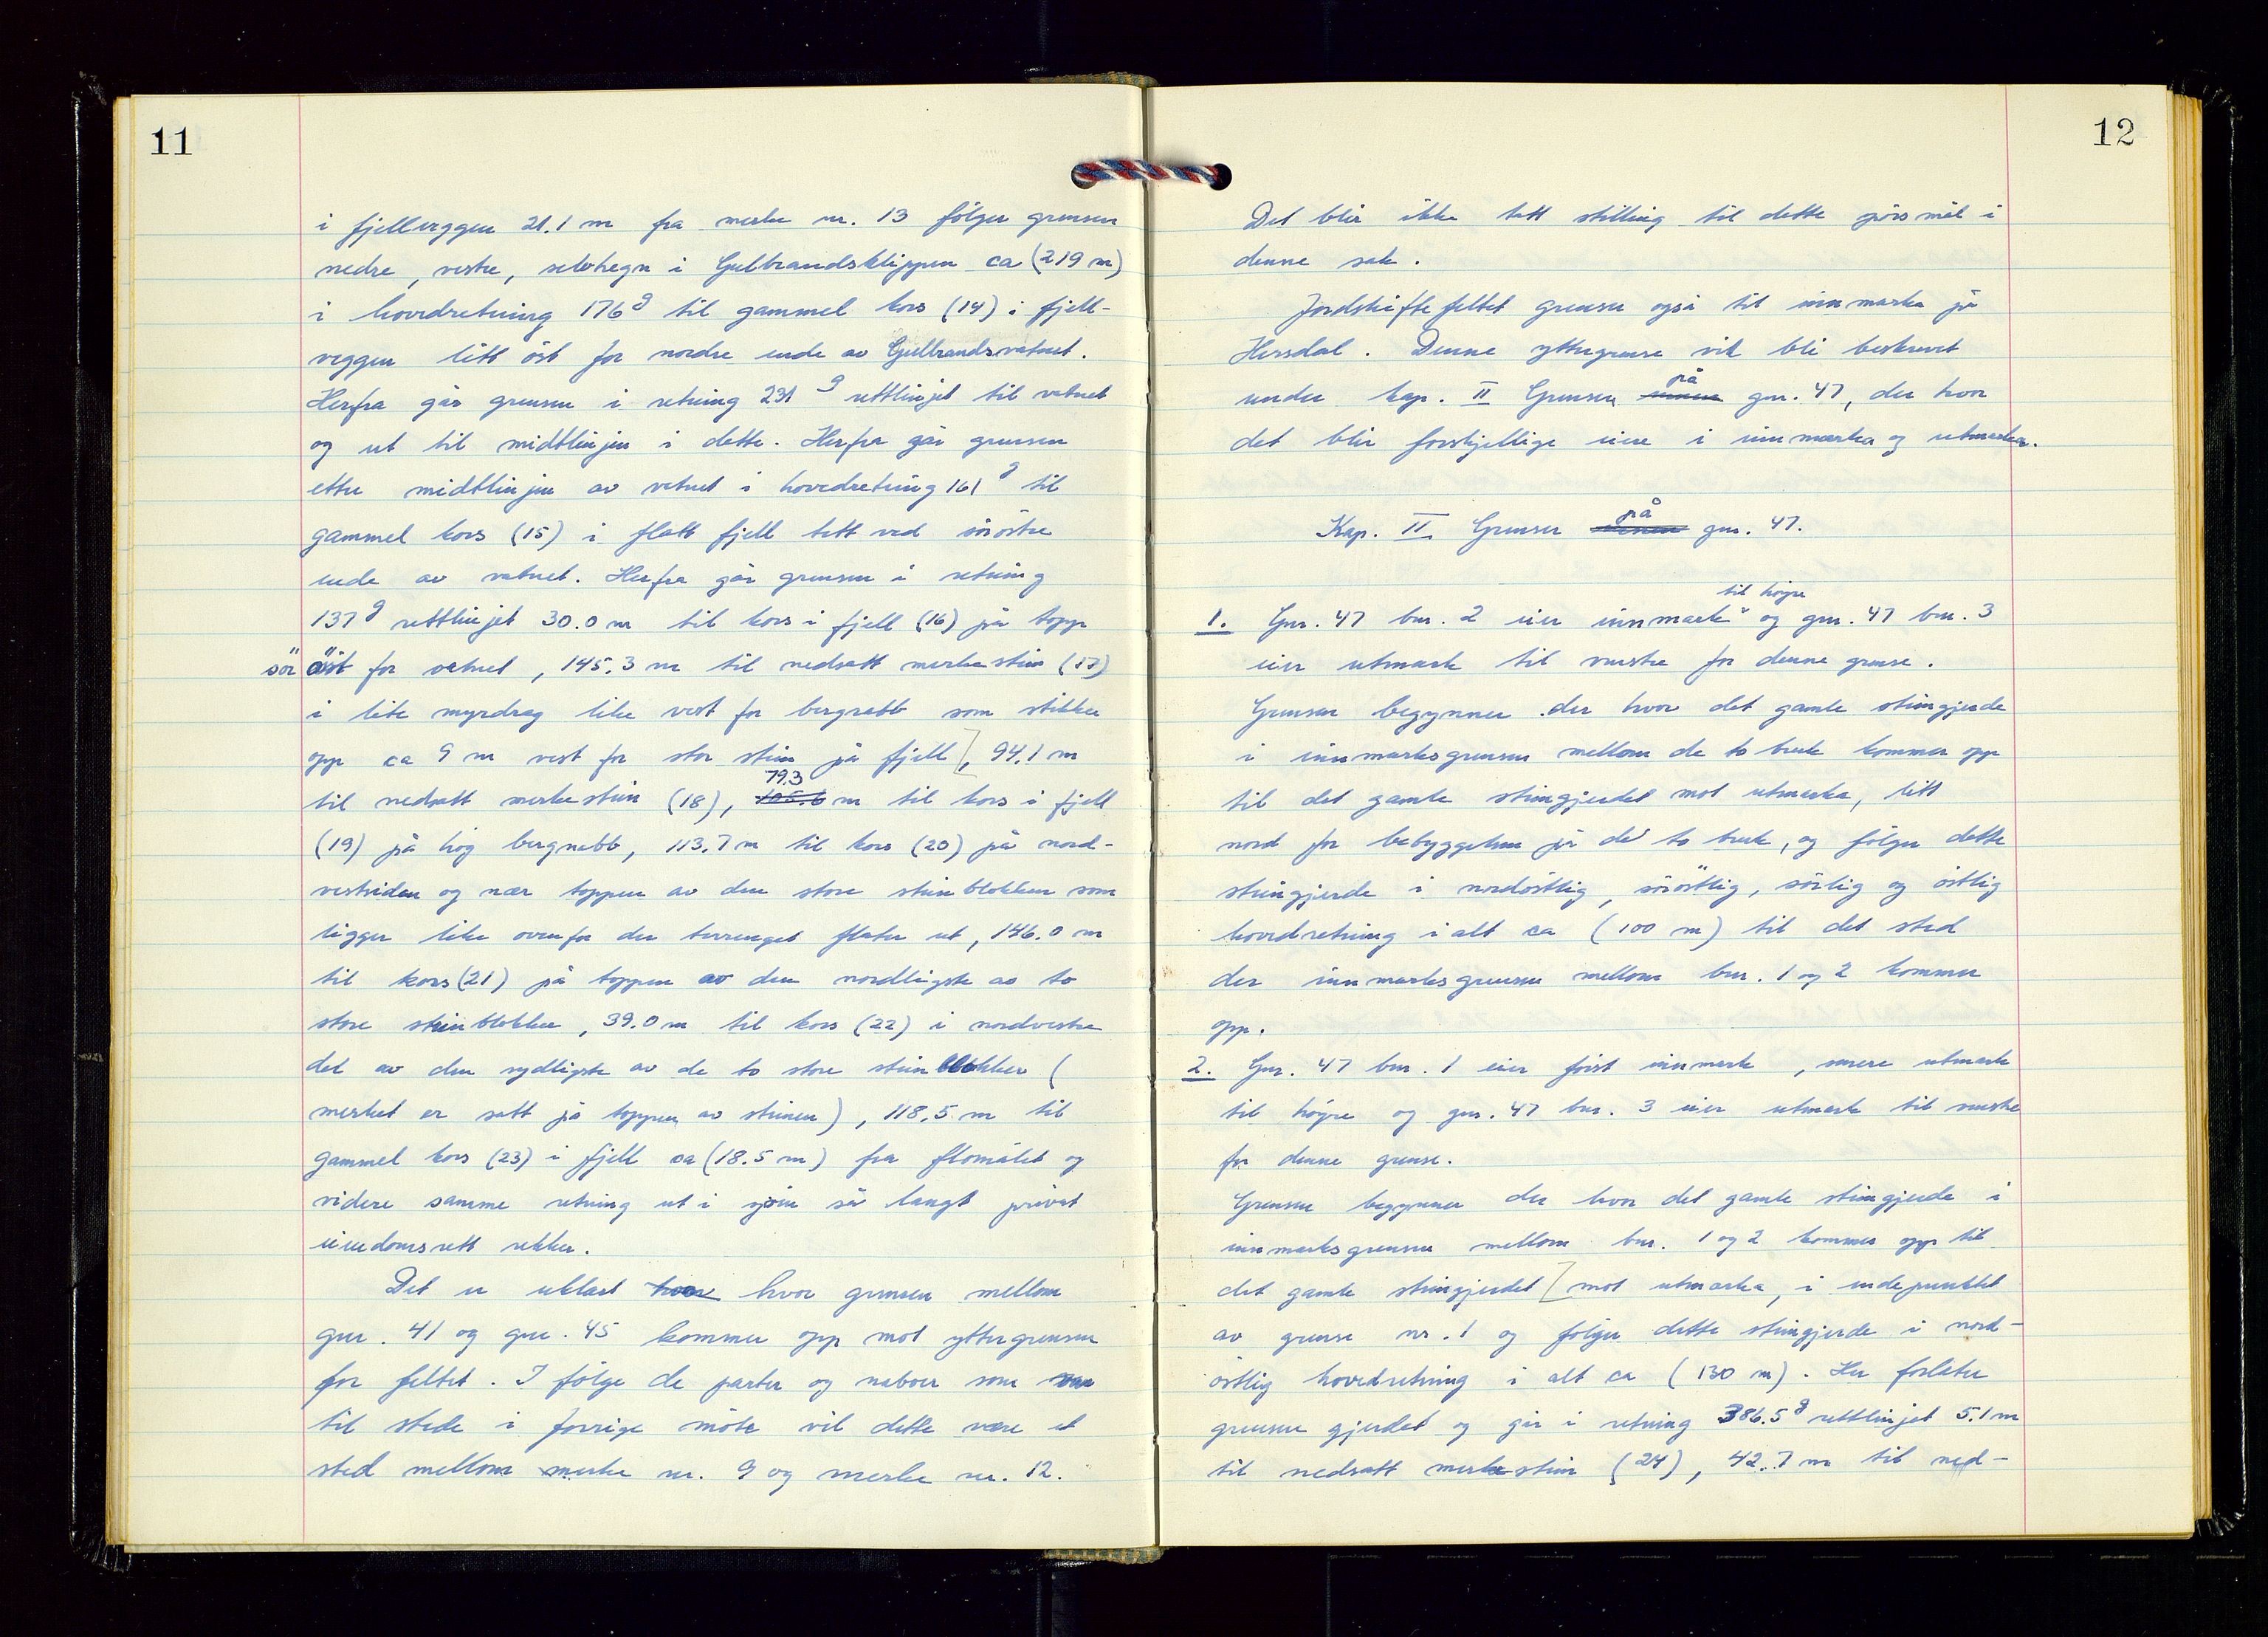 11
i fjellveggen 21.1 m fra merke nr. 13 følger grensen
nedre, vestre, selvtregn i Gulbrandsklippen ca (219 m)
i hovedretning 176 g til gammel kors (14) i fjell-
veggen litt öst for nordre ende av Gulbrandsvatnet.
Herfra går grensen i retning 231 g rettlinjet til vatnet
og ut til midtlinjen i dette. Herfra går grensen
etter midtlinjen av vatnet i hovedretning 161 g til
gammel kors (15) i flatt fjell tett ved söröstre
ende av vatnet. Herfra går grensen i retning
137 g rettlinjet 30.0 m til kors i fjell (16) på topp
sör öst for vatnet, 145.3 m til nedsatt merkestein (17)
i lite myrdrag like vest for bergrabb som stikker
opp ca 9 m vest for stor stein på fjell], 94.1 m
til nedsatt merkestein (18), 79.3 m til kors i fjell
(19) på høg bergnabb, 113.7 m til kors (20) på nord-
vestsiden og nær toppen av den store steinblokken som
ligger like ovenfor der terrenget flater ut, 146.0 m
til kors (21) på toppen av den nordligste av to
store steinblokker, 39.0 m til kors (22) i nordvestre
del av den sydligste av de to store steinblokker (
merket er satt på toppen av steinen), 118.5 m til
gammel kors (23) i fjell ca (18.5 m) fra flomålet og
videre samme retning ut i sjöen så langt privat
eiendomsrett rekker.
Det er uklart hvor grensen mellom
gnr. 41 og gnr. 45 kommer opp mot yttergrensen
for feltet. I følge de parter og naboer som var
til stede i forrige møte vil dette være et
sted mellom merke nr. 9 og merke nr. 12.
12
Det blir ikke tatt stilling til dette spörsmål i
denne sak.
Jordskiftefeltet grenser også til innmarka på
Hersdal. Denne yttergrense vil bli beskrevet
under kap. II Grenser på gnr. 47, der hvor
det blir forskjellige eiere i innmarka og utmarka.
Kap. II Grenser på gnr. 47.
1. Gnr. 47 bnr. 2 eier innmark til högre og gnr. 47 bnr. 3
eier utmark til venstre for denne grense.
Grensen begynner der hvor det gamle steingjerde
i innmarksgrensen mellom de to bruk kommer opp
til det gamle steingjerdet mot utmarka, litt
nord for bebyggelsen på de to bruk, og følger dette
steingjerde i nordöstlig, söröstlig, sörlig og östlig
hovedretning i alt ca (100 m) til det sted
der innmarksgrensen mellom bnr. 1 og 2 kommer
opp.
2. Gnr. 47 bnr. 1 eier först innmark, senere utmark
til högre og gnr. 47 bnr. 3 eier utmark til venstre
for denne grense.
Grensen begynner der hvor det gamle steingjerde i
innmarksgrensen mellom bnr. 1 og 2 kommer opp til
det gamle steingjerdet] mot utmarka, i endepunktet
av grense nr. 1 og følger dette steingjerde i nord-
östlig hovedretning i alt ca (130 m). Her forlater
grensen gjerdet og går i retning 386.5 g rettlinjet 5.1 m
til nedsatt merkestein (24), 42.7 m til ned-